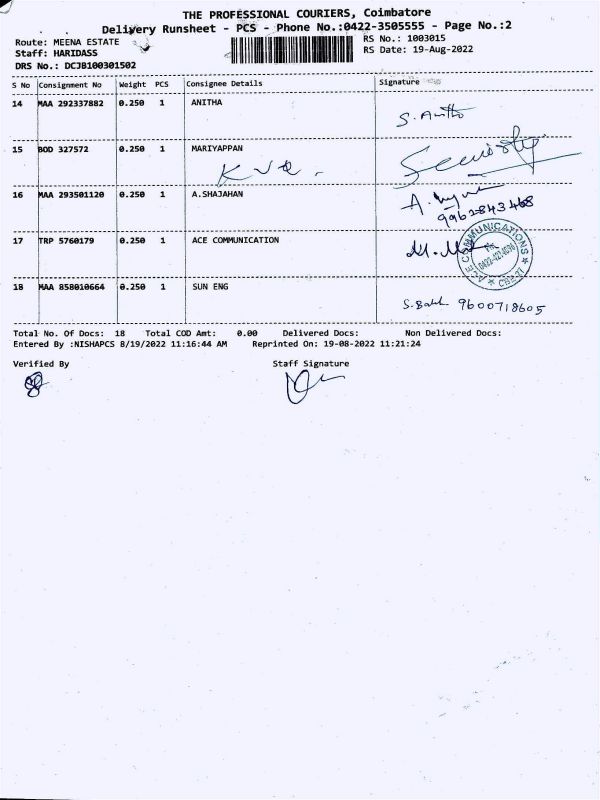 THE PROFESSIONAL COURIERS, Coimbatore
Delivery Runsheet - PCS - Phone No.:0422-3505555 - Page No.:2
Route: MEENA ESTATE RS No.: 1003015
Staff: HARIDASS RS Date: 19-Aug-2022
DRS No.: DCJB100301502
S No Consignment No Weight PCS Consignee Details Signature
14 MAA 292337882 0.250 1 ANITHA
S. Anitha
15 BOD 327572 0.250 1 MARIYAPPAN
16 MAA 293501120 0.250 1 A.SHAJAHAN
9962843468
17 TRP 5760179 0.250 1 ACE COMMUNICATION
ACE COMMUNICATIONS
18 MAA 858010664 0.250 1 SUN ENG
9600718605
Total No. Of Docs: 18 Total COD Amt: 0.00 Delivered Docs: Non Delivered Docs:
Entered By :NISHAPCS 8/19/2022 11:16:44 AM Reprinted On: 19-08-2022 11:21:24
Verified By Staff Signature